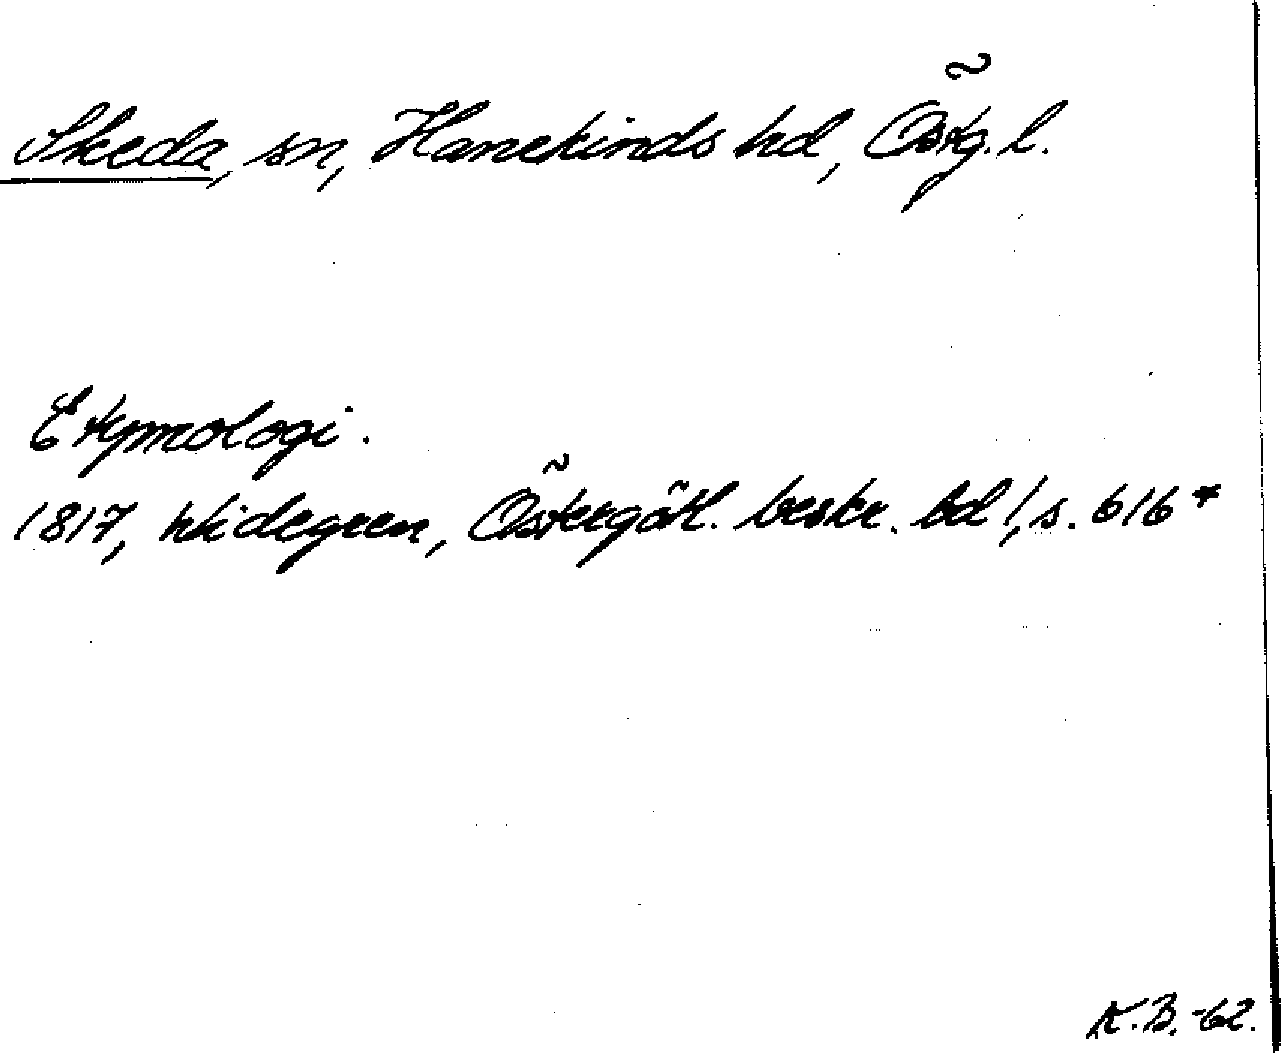 Skeda, sn, Hanekinds hd, Östg. l.
Etymologi.
1817, Widegren, Östergötl. beskr. bd 1, s. 616*
K.B. -62.